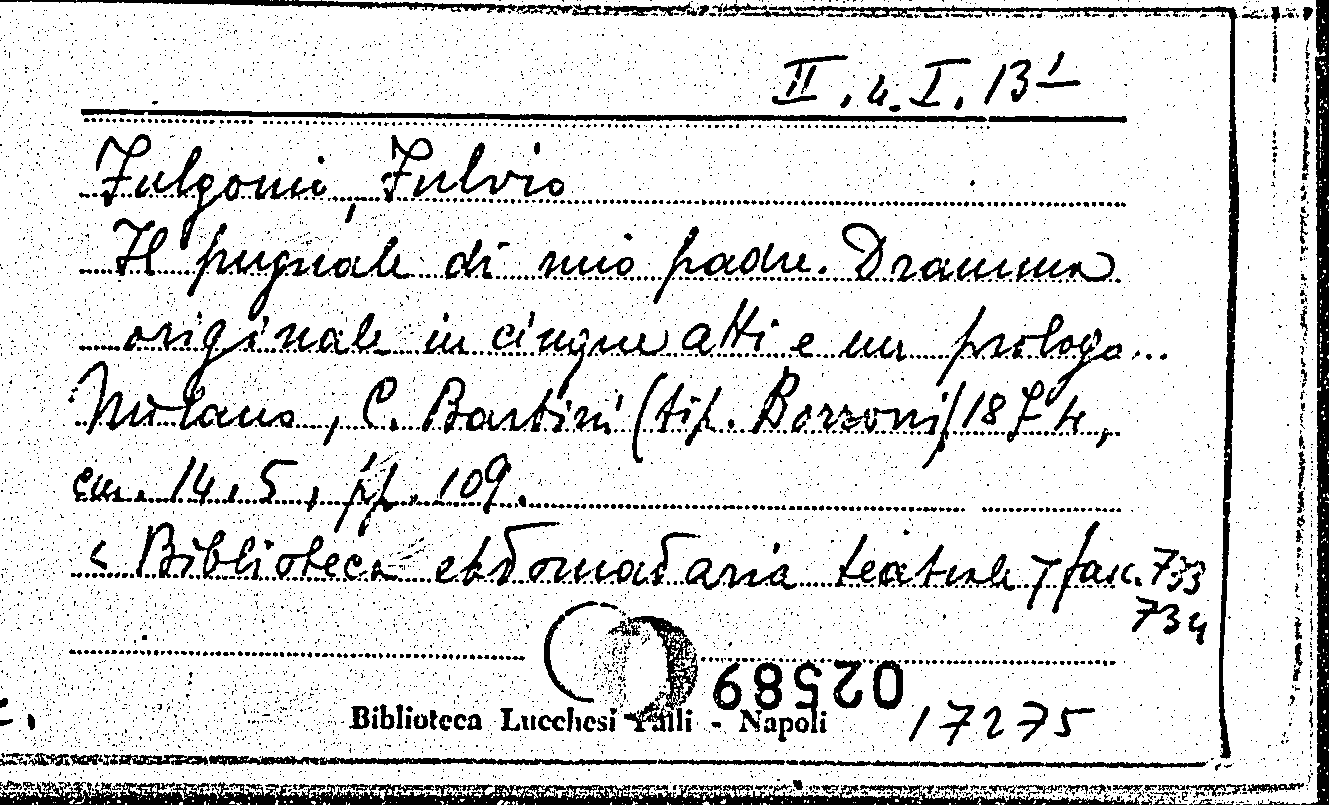 II. 4. I. 13¹
Fulgonio, Fulvio
Il pugnale di mio padre. Dramma
originale in cinque atti e un prologo...
Milano, C. Barbini (tip. Borroni) 1874,
cm. 14.5, pp. 109.
< Biblioteca ebdomadaria teatrale > fasc. 733
734
02589
Biblioteca Lucchesi Palli - Napoli
17275